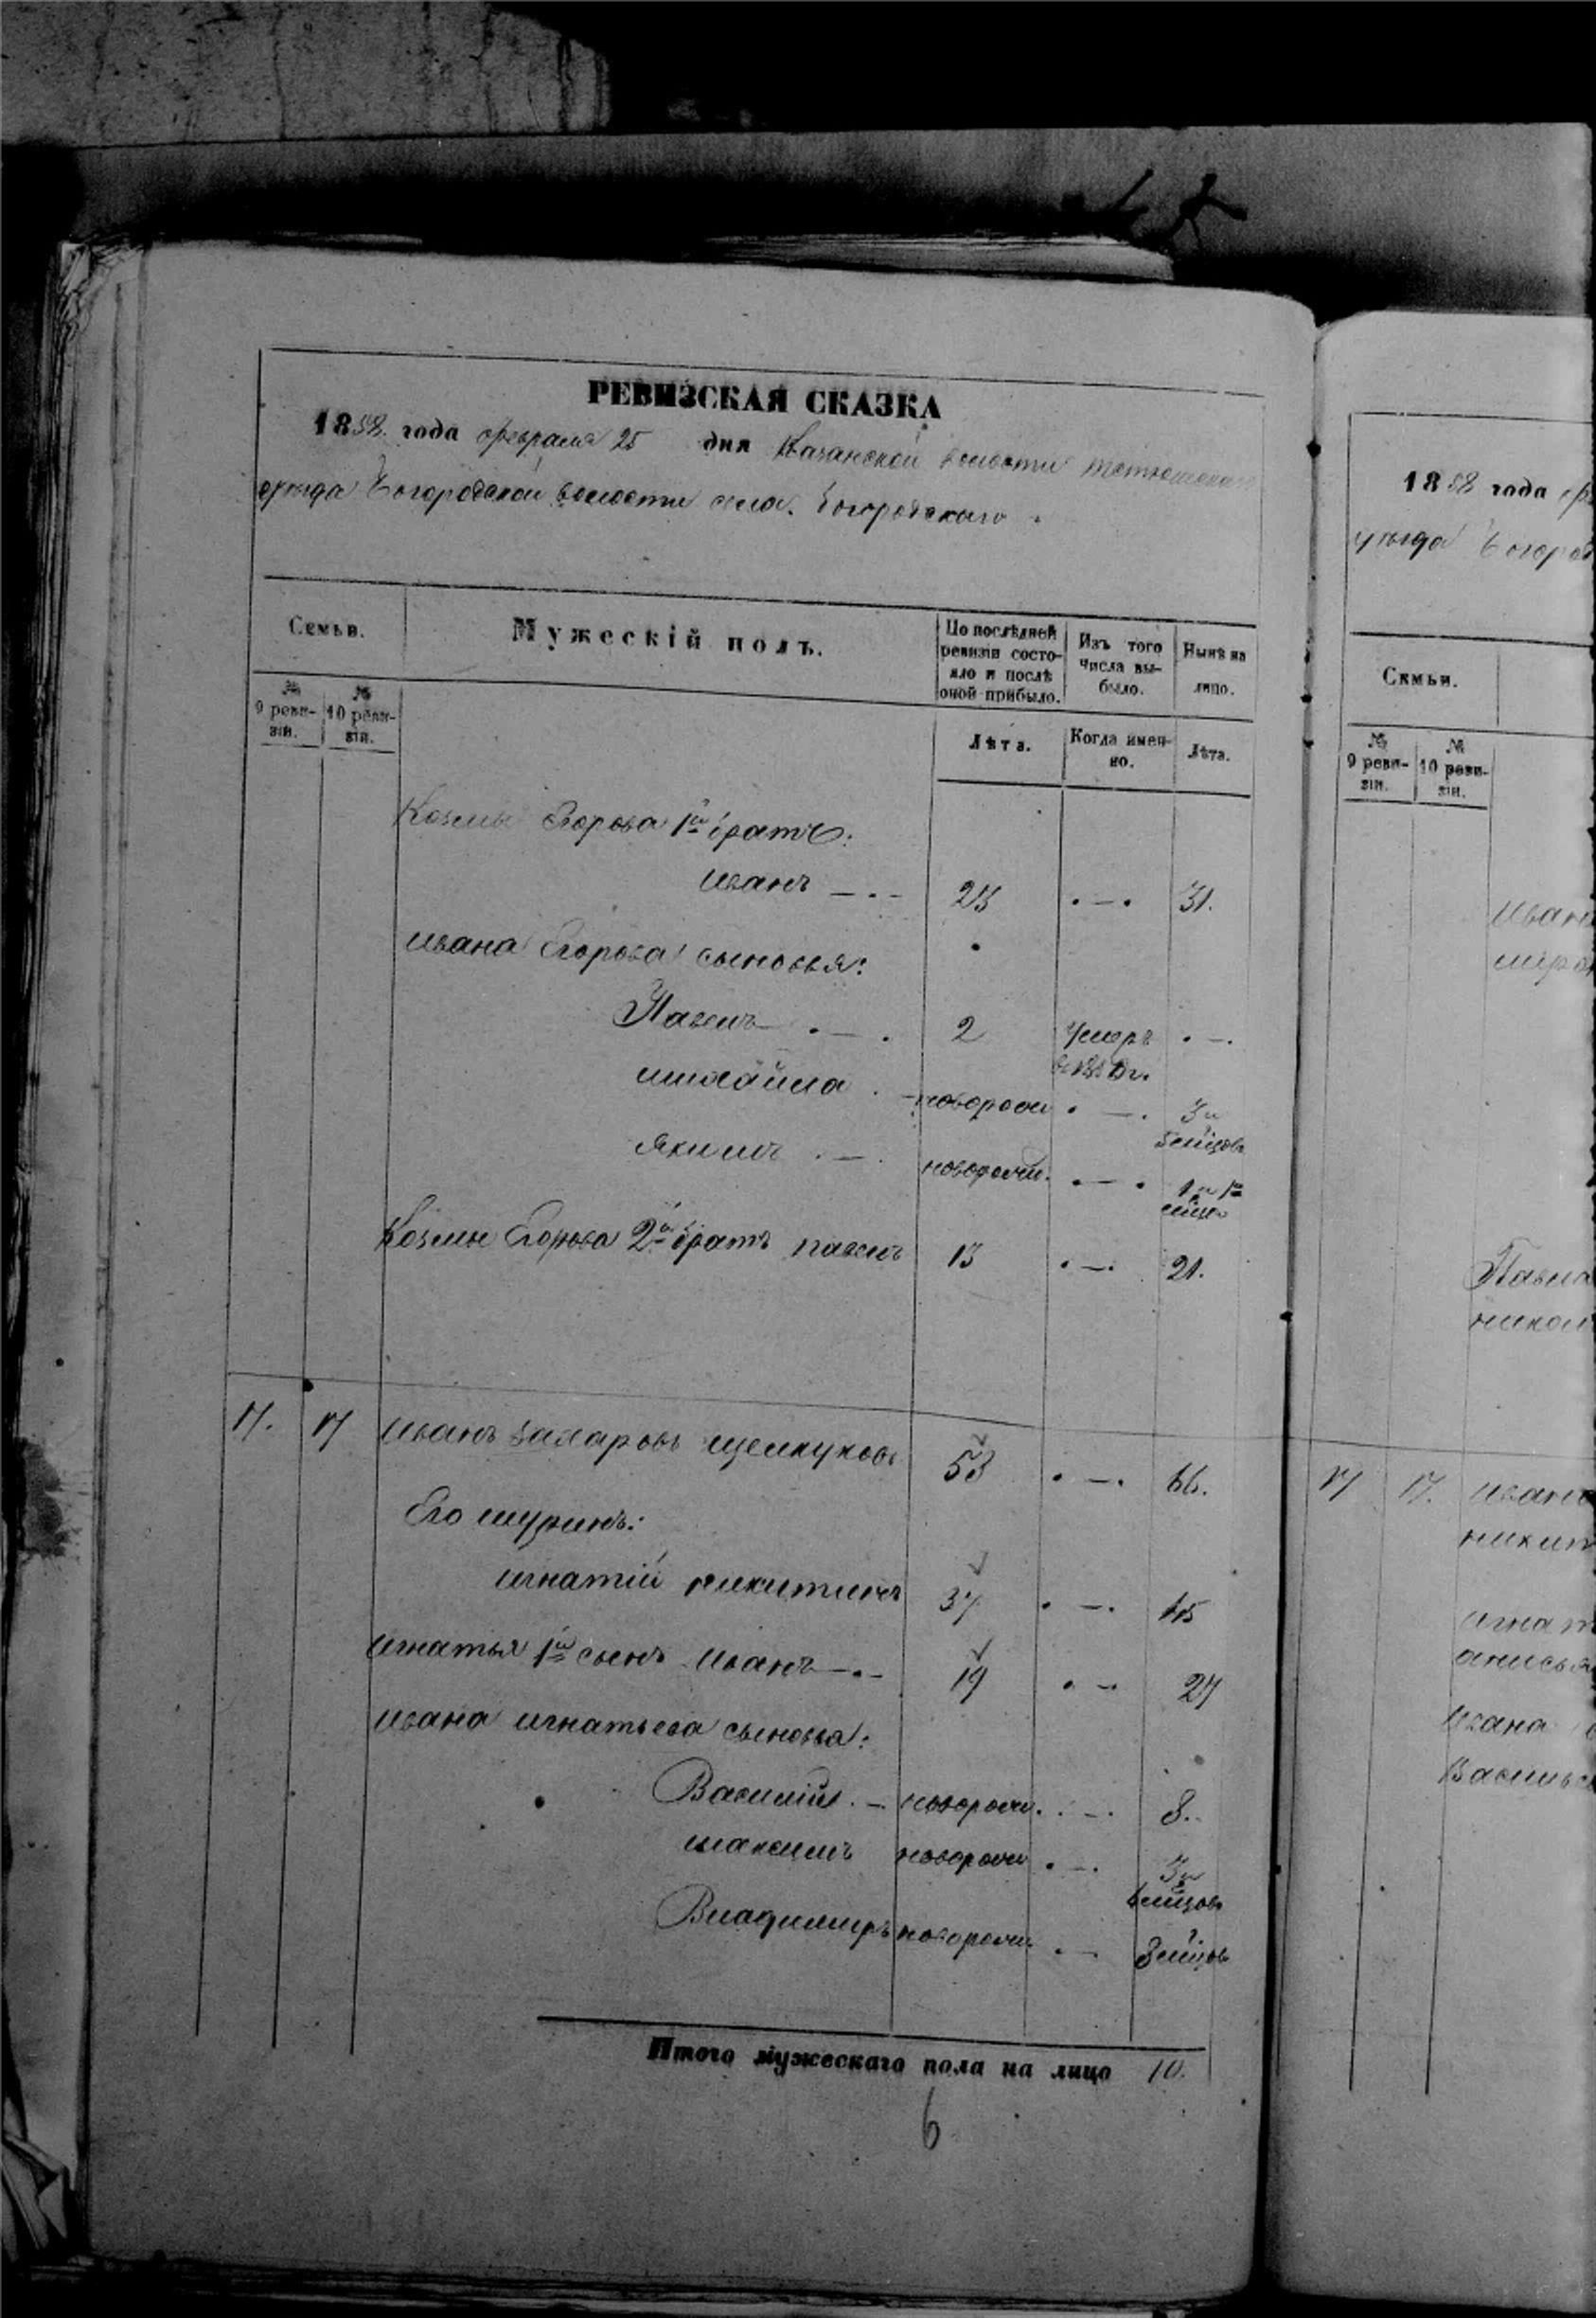 РЕВИЗСКАЯ СКАЗКА
1858. года февраля 25 дня Казанской волости тетюшскаго
уезда Богородской волости села. Богородскаго.
Семьи.
Мужескій полъ.
По послѣдней ревизіи состояло и послѣ оной прибыло.
Изъ того числа выбыло.
Нынѣ на лицо.
№ 9 ревизіи.
№ 10 ревизіи.
Лѣта.
Когда именно.
Лѣта.
Козмы Егорова 1й братъ:
Иванъ — . — 23 . — . 31.
Ивана Егорова сыновья:
Павелъ . — . 2 Умеръ . — .
в 1850 г.
михайла . — новорожд . — . 3 и
5 мѣцовъ
Якимъ . — . новорожд. . — . 1 и 1
мѣцъ
Козмы Егорова 2й братъ павелъ 13 . — . 21.
17. 17 Иванъ Захаровъ Щелкуновъ 58 . — . 66.
Его шуринъ:
игнатій никитинъ 37 . — . 45
Игнатья 1й сынъ Иванъ — . — 19 . — 27
Ивана игнатьева сыновья:
Василій . — новорожд. . — . 8.
максимъ новорожд . — . 3 и
6 мѣцовъ
Владимиръ новорожд. . — 3 мѣцовъ
Итого мужескаго пола на лицо 10.
6
1858 года
уезда Богород
Семьи.
№ 9 ревизіи.
№ 10 ревизіи.
Иван
Павла
никол
17 17. Ивана
никит
игнат
анисья
Ивана
Василь